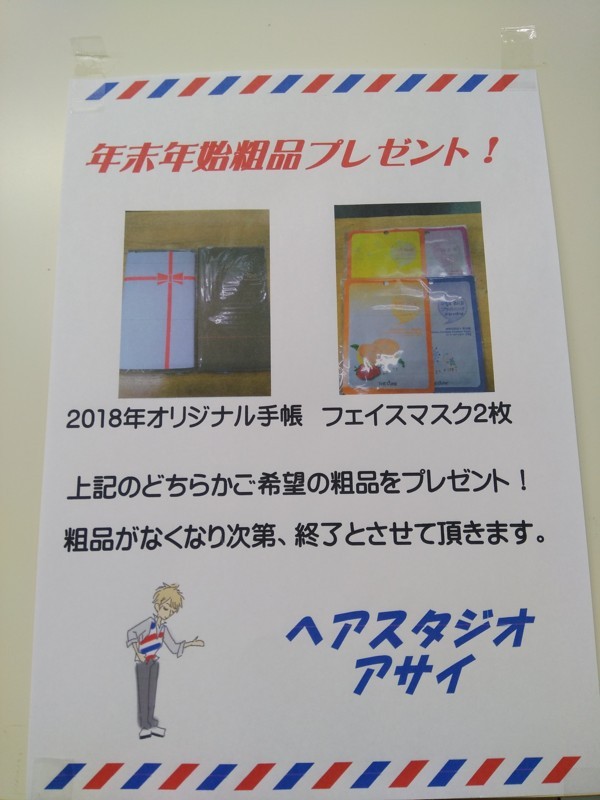 年末年始粗品プレゼント！
2018年オリジナル手帳　フェイスマスク2枚
上記のどちらかご希望の粗品をプレゼント！
粗品がなくなり次第、終了とさせて頂きます。
ヘアスタジオ
アサイ